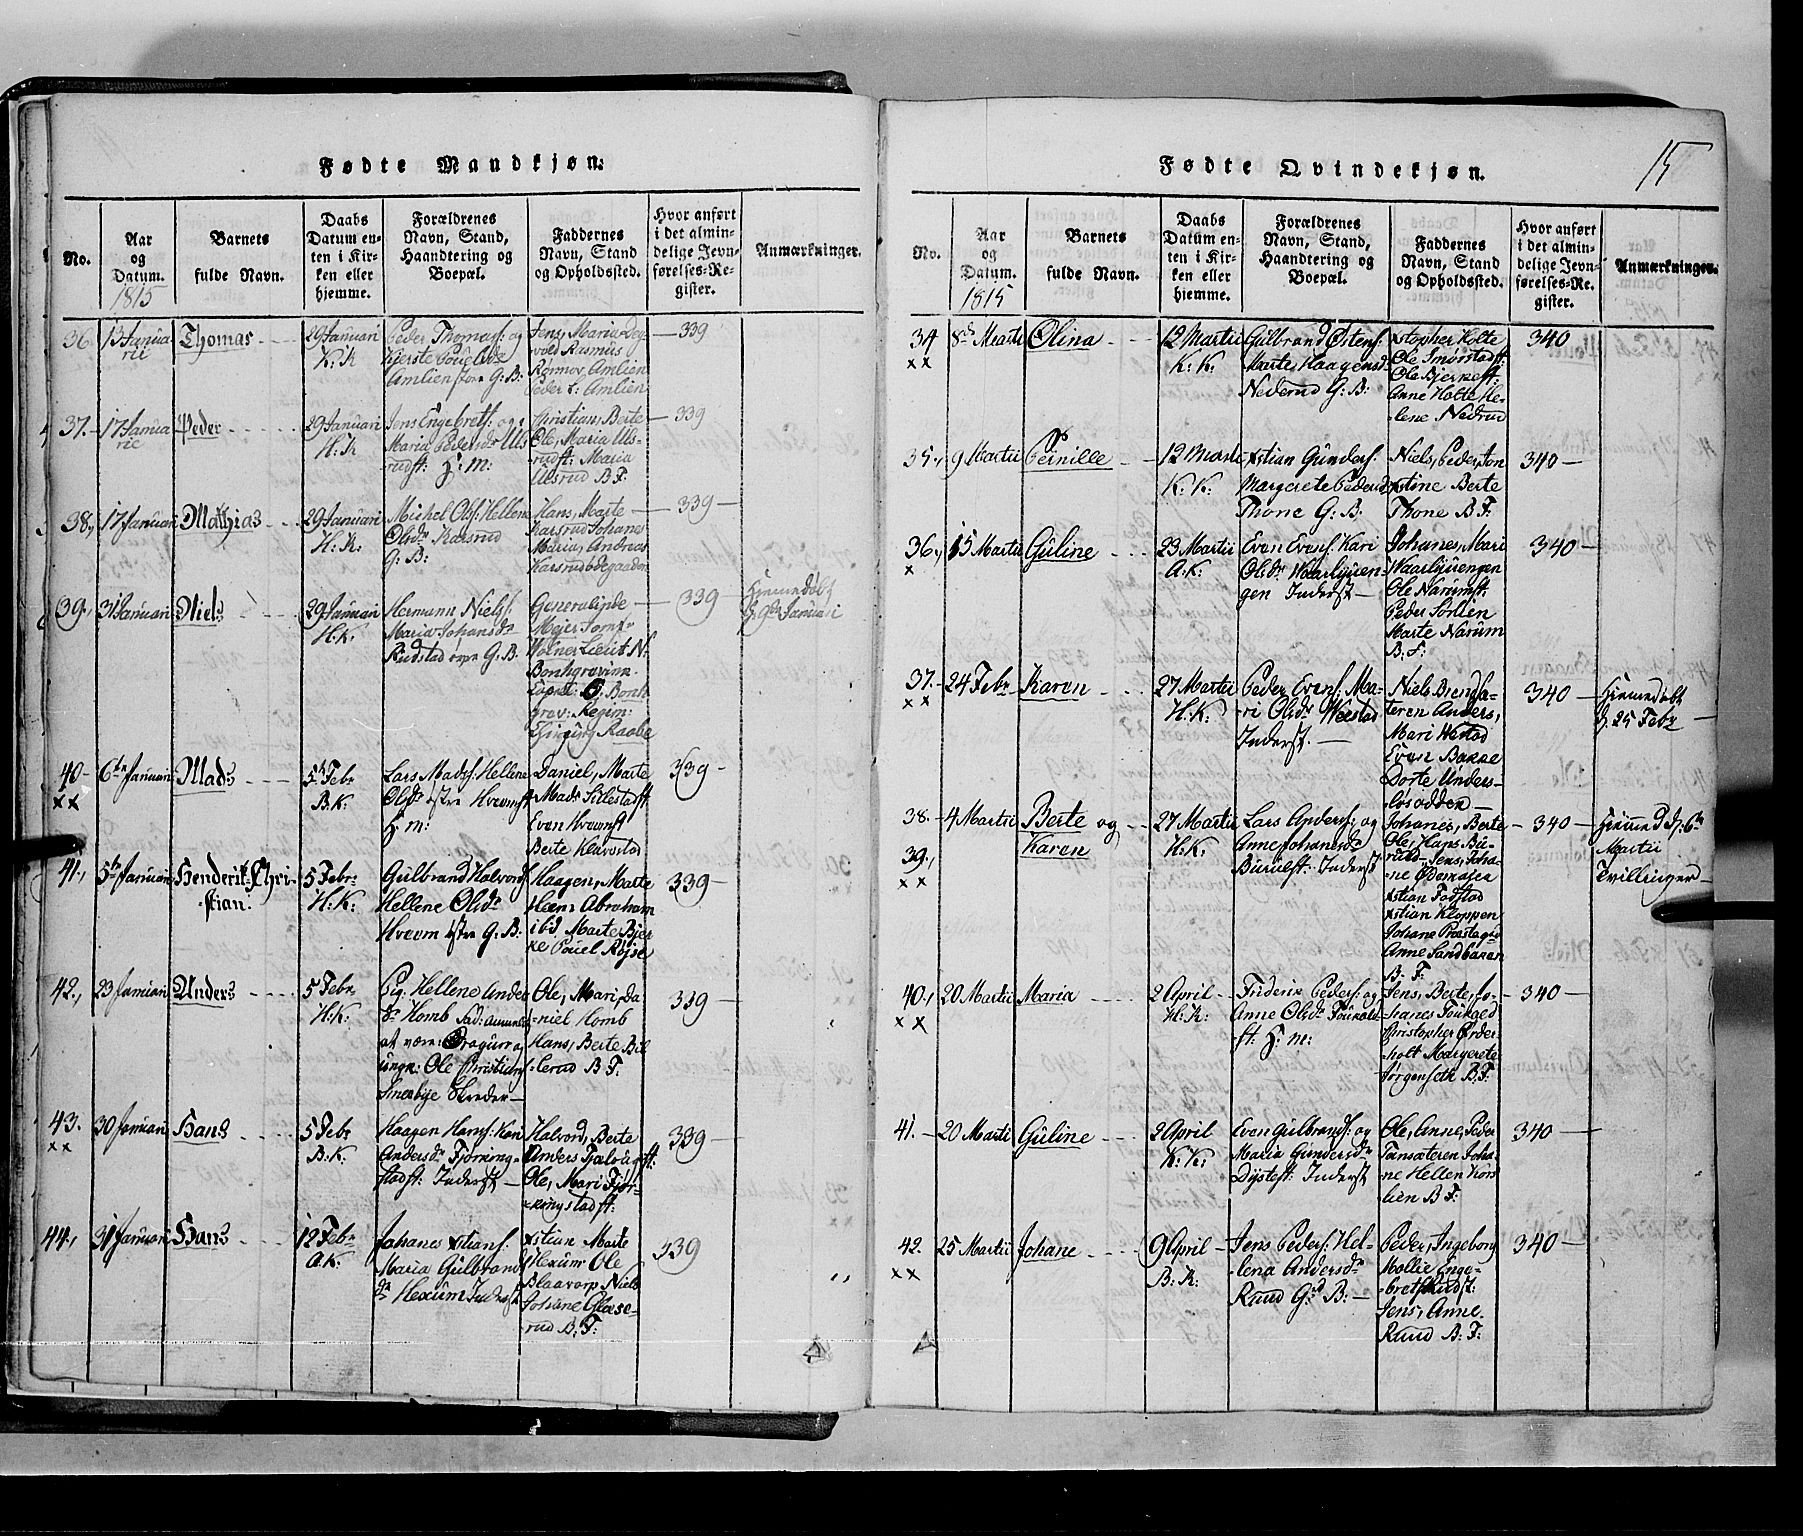 Fødte Mandkjøn.
No.
Aar
og
Datum.
1815
Barnets
fulde Navn.
Daabs
Datum en-
ten i Kir-
ken eller
hjemme.
Forældrenes
Navn, Stand,
Haandtering og
Boepæl.
Faddernes
Navn, Stand
og Opholdssted.
Hvor anført
i det almin-
delige Jevn-
førelses-Re-
gister.
Anmærkninger.
36.
13 Janua
rii
Thomas
29 Januari
K: K
Peder Thomas: og
Kjerste Poulsdr
Amlien G: B:
Jens, Maria
Rasmus
Amlien
Peder Amlien
339
37.
17 Janua
rie
Peder
29 Januari
H: K
Jens Engebretf: og
Maria Pedersdr Uls
rudft: H: M:
Christian, Berte
Ole, Maria Uls-
rudft: Maria
Ulsrud B F:
339
38.
17 Januari
Mathias
29 Januari
H: K:
Michel Olsf: Hellene
Olsdr Karsrud
G: B:
Hans, Marte
Karsrud Johanes
Maria, Andreas
Karsrudødegaarden
339
39.
31 Januari
Niels
29 Januari
H: K:
Hermann Nielsf:
Maria Johansdr
Rudstad G: B:
Generalinde
Mejer
Wolner Lieut: N.
Bornhgrevinn
Capit: O: Bornh
grev: Regim:
Chirurg Raabe
339
Hiemedøbt
d: 9de Januari
40
xx
6te Januari
Mads
5 Febr
B. K:
Lars Madsf: Hellene
Olsdr østre Hveemft
H: m:
Daniel, Marte
Mads Sillestadft
Even Hveemft
Berte Klavestad
339
41.
5te Januari
Henderik Chri-
stian.
5 Febr
H: K:
Gulbrand Halvorsf
Hellene Olsdr
Hveem østre G: B.
Haagen, Marte
Heen: Abraham
ibid Marte Bjer
ke Pouel Røjse
339
42.
23 Januari
Anders
5 Febr
H: K:
Pig: Hellene Ander
dr Homb
at være: Dragun og
ungk: Ole Christians
Smebye Skreder
Ole, Mari, Da-
niel Homb
Hans, Berte Bil
lerud B. F:
339
43.
xx
30 Januari
Hans
5 Febr
B: K:
Haagen Hansf: Kari
Andersdr Fjorkeng-
stadft: Inderst
Halvord, Berte
Anders Fjalbuft:
Ole, Mari Fjor-
kengstadft:
339
44.
31 Januari
Hans
12 Febr
A K:
Johanes Xstiansf:
Maria Gulbrand
dr Hexum Inderst
Xstian Marte
Hexum Ole
Blaavarp Niels
Johane Glæse-
rud B. F:
339
Fødte Qvindekjøn.
15
No.
Aar
og
Datum.
1815
Barnets
fulde Navn.
Daabs
Datum en-
ten i Kir-
ken eller
hjemme.
Forældrenes
Navn, Stand,
Haandtering og
Boepæl.
Faddernes
Navn, Stand
og Opholdssted.
Hvor anført
i det almin-
delige Jevn-
førelses-Re-
gister.
Anmærkninger.
34
xx
8de Martii
Olina
12 Martii
K: K:
Gulbrand Østensf:
Marte Haagensdr
Nederud G: B:
Xstopher Holte
Ole Smørstadft:
Ole Bjerkeft:
Anne Holte He-
lene Nedrud
340
35.
9 Martii
Pernille
12 Martii
K: K:
Xstian Gundersf:
Margrete Pedersd
Thone G: B.
Niels, Peder, Jon
Xstine Berte
Thone B F:
340
36.
x
15 Martii
Guline
23 Martii
A. K:
Even Evensf: Kari
Olsdr Waarlyuren-
gen Inderst
Johanes, Mari
Waarlyurengen
Ole Narumft
Peder Sørlien
Marte Narum
B. F:
340
37.
xx
24 Febr
Karen
27 Martii
H: K:
Peder Evensf: Ma-
ri Olsdr Weestad
Inderst.
Niels Brendsæ-
teren Anders,
Mari Westad
Even Bakke
Dorte Unders-
løsodden
340
Hiemedøbt
d. 25 Febr
38.
39.
xx
4 Martii
Berte og
Karen
27 Martii
H: K:
Lars Andersf: og
Anne Johanesdr
Burulft: Inderst
Johanes, Berte
Ole, Hans Bu-
ruld Jens, Joha-
ne Ødemarken
Xstian Fodstad
Xstian Kloppen
Johane Præstegrd
Anne Sandbaken
B. F:
340
Hiemmed d: 6te
Martii
Tvillinger
40.
xx
20 Martii
Maria
2 April
H: K:
Friderik Pedersf: og
Anne Olsdr Foukald-
ft: H: m:
Jens, Berte, Jo-
hanes Foukald
Christopher Ørder-
holt Margrete
Jørgenseth B. F:
340
41.
20 Martii
Guline
2 April
K: K:
Even Gulbrandsf: og
Maria Gundersdr
Dysteft: Inderst
Ole, Anne, Peder
Tansæteren Joha-
ne Hellen Kors
lien B F:
340
42.
xx
25 Martii
Johane
9 April
B: K:
Jens Pedersf: Hel-
lena Andersdr
Ruud Gd B:
Peder, Ingeborg
Mollie Enge-
bret Ruudft:
Jens, Anne
Ruud B. F:
340